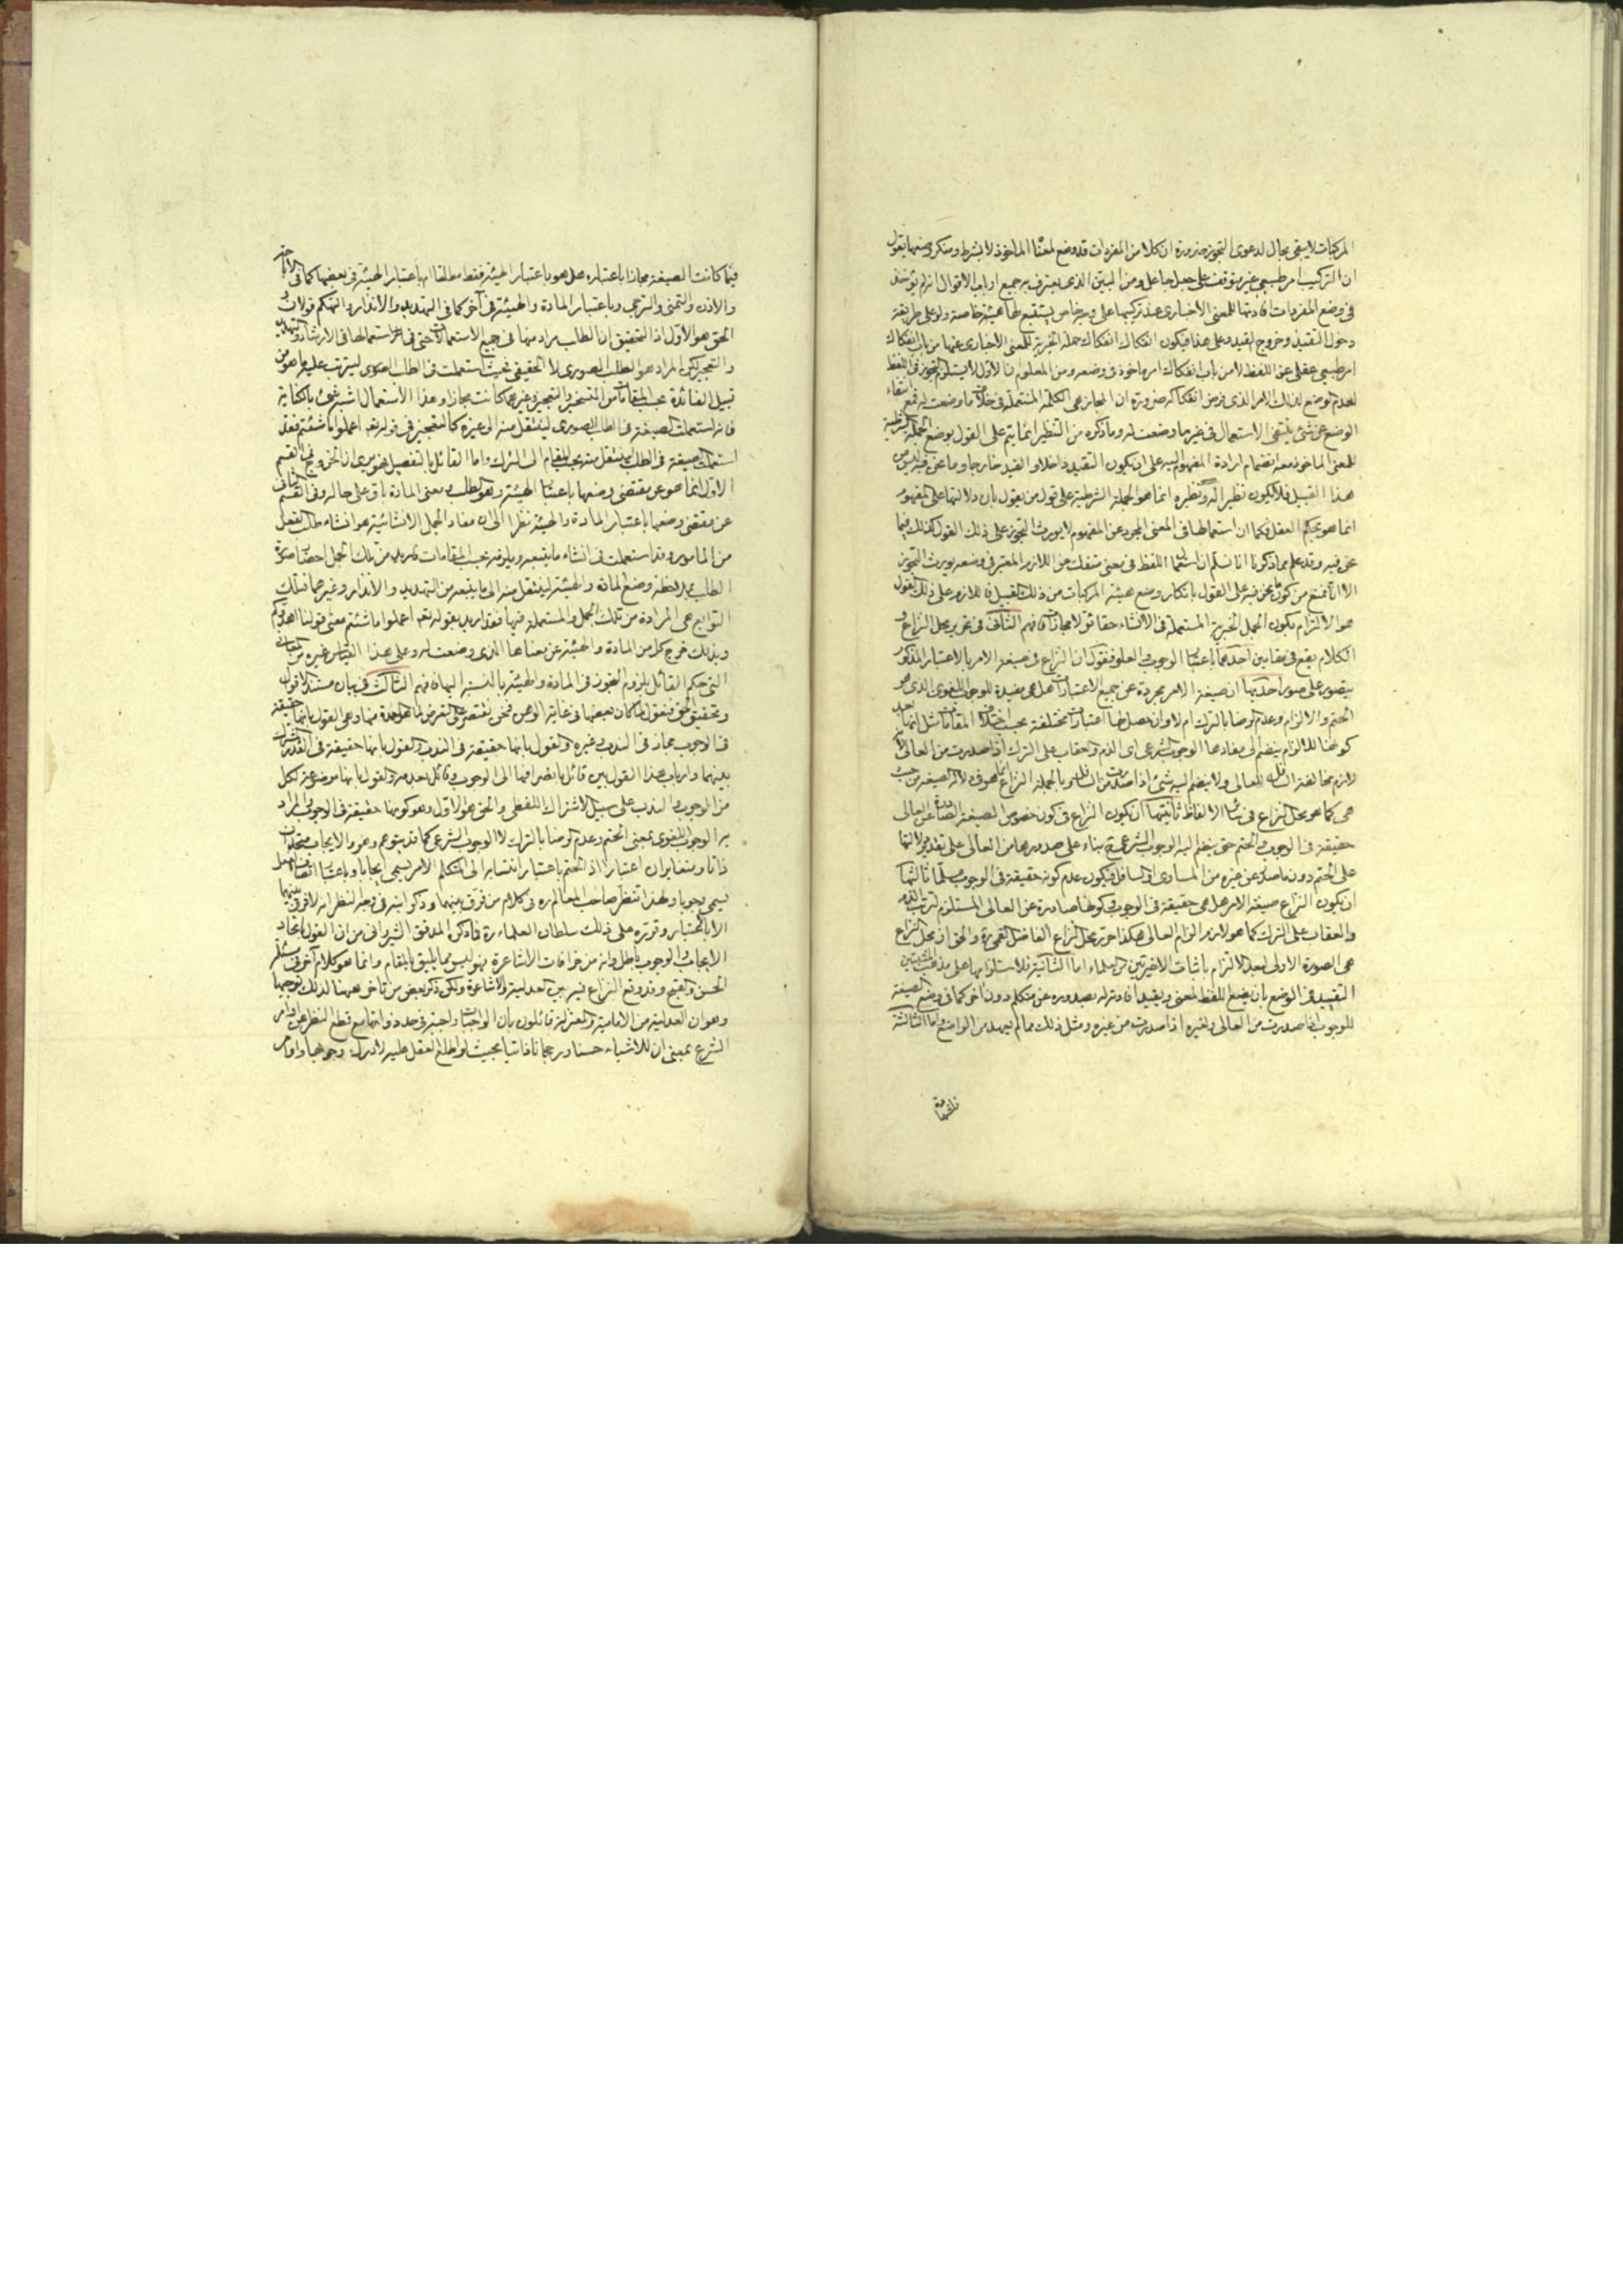 المركبات لا يبقى مجال لدعوى التجوز ضرورة ان كلا من المفردات قد وضع لمعناا الماخوذ لا بشرط ومنكر وضعها يقول
ان التركيب امر طبيعي غير متوقف على جعل جاعل ومن البين الذي يعترف به جميع ارباب الاقوال انه لم يؤخذ
في وضع المفردات افادتها للمعنى الاخباري عند تركيبها على وجه خاص يستتبع لها هيئة خاصة ولو على طريقة
دخول التقييد وخروج القيد وعلى هذا فيكون انفكاك انفكاك جملة الخبرية للمعنى الاخباري عنها من باب انفكاك
امر طبيعي عقلي عن اللفظ لا من باب انفكاك امر ماخوذ في وضعه ومن المعلوم ان الاول لا يستلزم التجوز في اللفظ
لعدم الوضع لذلك الامر الذي فرض انفكاكه ضرورة ان المجاز هي الكلمة المستعملة في خلاف ما وضعت له فمع انتفاء
الوضع عن شئ ينتفي الاستعمال في غير ما وضعت له وما ذكره من التنظير انما يتم على القول بوضع الجملة الشرطية
للمعنى الماخوذ معه انضمام ارادة المفهوم اليه على ان يكون التقييد داخلا والقيد خارجا وما نحن فيه ليس من
هذا القبيل فلا يكون نظيرا له ونظيره انما هو الجملة الشرطية على قول من يقول بان دلالتها على المفهوم
انما هو بحكم العقل فكما ان استعمالها في المعنى المجرد عن المفهوم لا يورث التجوز على ذلك القول فكذلك فيما
نحن فيه وقد علم بما ذكرنا انا نسلم ان استعمال اللفظ في معنى منفك عن اللازم المعتبر في وضعه يورث التجوز
الا انا نمنع من كون ما نحن فيه على القول بانكار وضع هيئة المركبات من ذلك القبيل فاللازم على ذلك القول
هو الالتزام بكون الجمل الخبرية المستعملة في الانشاء حقائق لا مجازات فافهم الثاني في تحرير محل النزاع و
الكلام يقع في مقامين احدهما باعتبار الوجوب والعلو فنقول ان النزاع في صيغة الامر بالاعتبار المذكور
يتصور على صور احديها ان صيغة الامر مجردة عن جميع الاعتبارات هل هي مفيدة للوجوب اللغوي الذي هو
الحتم والالزام وعدم الرضا بالترك ام لا وان حصل لها اعتبارات مختلفة بحسب اختلاف المقامات مثل انها بعد
كونها للالزام ينضم الى مفادها الوجوب الشرعي اى الذم والعقاب على الترك اذا صدرت من العالى لانه
لازم مخالفة السافل للعالى ولا ينضم اليه شئ اذا صدرت من السافل وبالجملة النزاع انما هو في دلالة الصيغة من حيث
هي كما هو محل النزاع في سائر الالفاظ ثانيتهما ان يكون النزاع في كون خصوص الصيغة الصادرة عن العالى
حقيقة في الوجوب والحتم حتى ينضم اليه الوجوب الشرعي ح بناء على صدورها من العالى على تقدير دلالتها
على الحتم دون ما صدر عن غيره من المساوى او السافل فيكون عدم كونه حقيقة في الوجوب مسلما ثالثتها
ان يكون النزاع صيغة الامر هل هي حقيقة في الوجوب وكونها صادرة عن العالى المستلزم لترتب الذم
والعقاب على الترك كما هو لازم الزام العالى هكذا حرر محل النزاع الفاضل القمي ره والحق ان محل النزاع
هي الصورة الاولى لبعد الالتزام باثبات الاخيرتين من العلماء اما الثانية فلاستلزامها على مذهب المثبتين
التقييد في الوضع بان يضع اللفظ لمعنى ويقيد افادته له بصدوره عن متكلم دون آخر كما في وضع الصيغة
للوجوب اذا صدرت من العالى ولغيره اذا صدرت من غيره ومثل ذلك مما لم يعهد من الواضع واما الثالثة
فيما كانت الصيغة مجازا باعتباره هل هو باعتبار الهيئة فقط مطلقا او باعتبار الهيئة في بعضها كما في الاباحة
والاذن والتمنى والترجي وباعتبار المادة والهيئة في آخر كما في التهديد والانذار والتهكم قولان و
الحق هو الاول اذ التحقيق ان الطلب مراد منها في جميع الاستعمالات حتى في استعمالها في الارشاد والتهديد
والتعجيز لكن المراد هو الطلب الصورى لا الحقيقي فحيث استعملت في الطلب الصورى ليترتب عليه ما هو من
قبيل الفائدة بحسب المقامات من التسخير والتعجيز وغيرهما كانت مجازا وهذا الاستعمال اشبه شئ بالكناية
فانه استعملت الصيغة في الطلب الصورى لينتقل منه الى غيره كالتعجيز في قوله تعه اعملوا ما شئتم فقد
استعملت الصيغة في الطلب لينتقل منه بحسب المقام الى الترك واما القائل بالتفصيل فهو يرى ان الخروج في القسم
الاول انما هو عن مقتضى وضعها باعتبار الهيئة وهو الطلب ومعنى المادة باق على حاله وفى القسم الثاني
عن مقتضى وضعها باعتبار المادة والهيئة نظرا الى ان مفاد الجمل الانشائية هو انشاء طلب الفعل
من المامور وقد استعملت في انشاء ما يتبعه ويلزمه بحسب المقامات فاريد من تلك الجمل احضار صورة
الطلب بملاحظة وضع المادة والهيئة لينتقل منه الى ما يتبعه من التهديد والانذار وغيرهما فتلك
التوابع هي المرادة من تلك الجمل والمستعملة فيها فقد اريد بقوله تعه اعملوا ما شئتم معنى قولنا اهددكم
وبذلك خرج كل من المادة والهيئة عن معناها الذى وضعت له وعلى هذا القياس غيره من المعاني
التى حكم القائل بلزوم التجوز في المادة والهيئة بالنسبة اليها فافهم الثالث في بيان مستند الاقوال
وتحقيق الحق فنقول لما كان بعضها في غاية الوهن فنحن نقتصر على التعرض لما هو العمدة منها وهى القول بانها حقيقة
في الوجوب مجاز في الندب وغيره والقول بانها حقيقة في الندب والقول بانها حقيقة في القدر المشترك
بينهما وارباب هذا القول بين قائل بانصرافها الى الوجوب وقائل بعدمه والقول بانها موضوعة لكل
من الوجوب والندب على سبيل الاشتراك اللفظي والحق هو الاول وهو كونها حقيقة في الوجوب والمراد
به الوجوب اللغوى بمعنى الحتم وعدم الرضا بالترك لا الوجوب الشرعي كما قد يتوهم وهو والايجاب متحدان
ذاتا ومتغايران اعتبارا اذ الحتم باعتبار انتسابه الى المتكلم الامر يسمى ايجابا وباعتبار اتصاف الفعل
يسمى وجوبا ولهذا تنظر صاحب المعالم ره في كلام من فرق بينهما وذكر ابنه في وجه النظر انه لا فرق بينهما
الا بالاعتبار وقرره على ذلك سلطان العلماء ره فما ذكره المدقق الشيرواني من ان القول باتحاد
الايجاب والوجوب باطل وانه من خرافات الاشاعرة فهو ليس مما يليق بالمقام وانما هو كلام آخر في مسئلة
الحسن والقبح وقد وقع النزاع فيه بين العدلية والاشاعرة ولكن ذكر بعض من تاخر ههنا لذلك توجيها
وهو ان العدلية من الامامية والمعتزلة قائلون بان الواجبات واجبة في حدد ذواتها مع قطع النظر عن اوامر
الشرع بمعنى ان للاشياء حسنا ورجحانا ذاتيا بحيث لو اطلع العقل عليه لادرك وجوبها واوامر